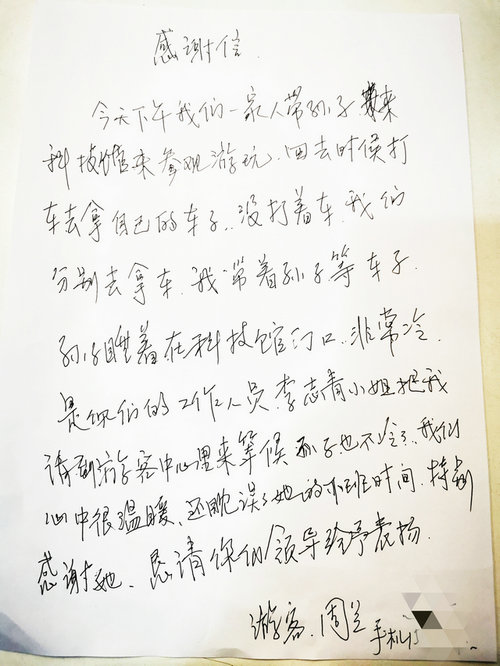 感谢信.
今天下午我们一家人带孙子来
科技馆来参观游玩.回去时候打
车去拿自己的车子.没打着车.我们
分别去拿车.我带着孙子等车子.
孙子睡着在科技馆门口.非常冷.
是你们的工作人员.李志青小姐把我
请到游客中心里来等候 孙子也不冷了.我们
心中很温暖、还耽误了她的下班时间.特别
感谢她.恳请你们领导给予表扬.
游客.周兰
手机